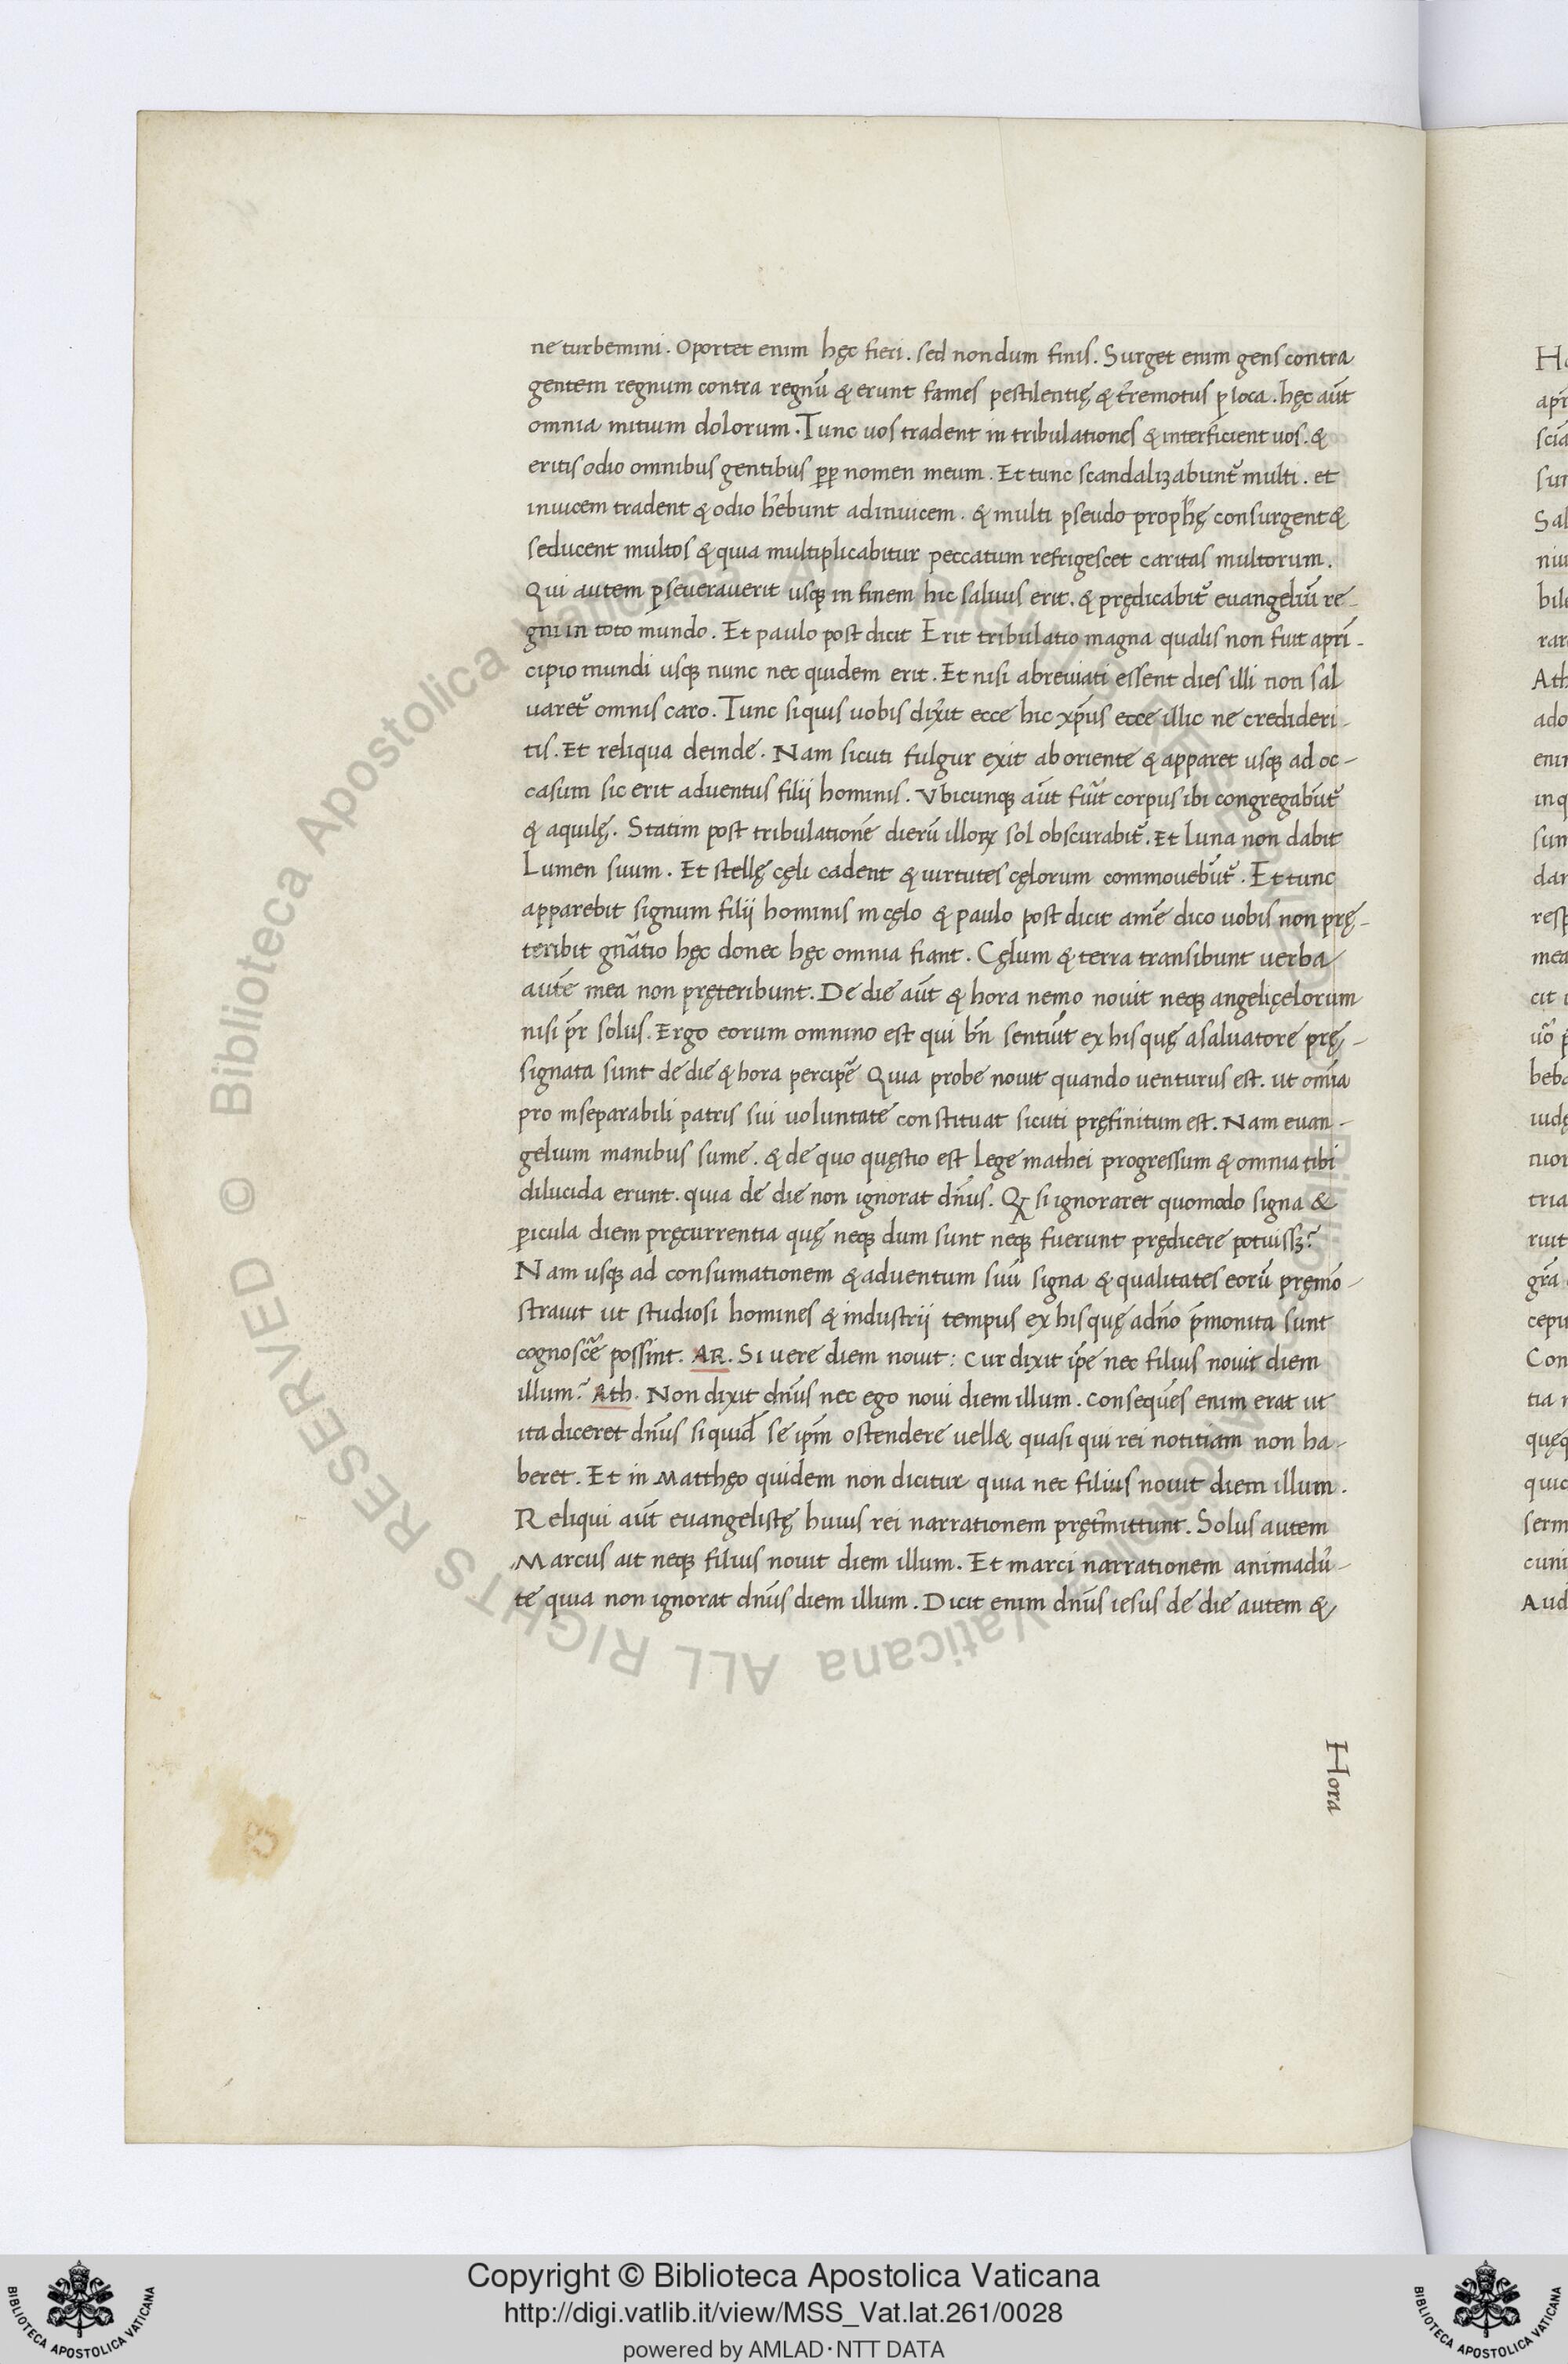 ne turbemini. Oportet enim hęc fieri. sed nondum finis. Surget enim gens contra
gentem regnum contra regnũ & erunt fames pestilentię & t̃remotus ꝑ loca. hęc aũt
omnia initium dolorum. Tunc uos tradent in tribulationes & interficient uos. &
eritis odio omnibus gentibus ꝓp nomen meum. Et tunc scandalizabunt᷑ multi. et
inuicem tradent & odio h̃ebunt adinuicem. & multi pseudo proph̃ę consurgent &
seducent multos & quia multiplicabitur peccatum refrigescet caritas multorum.
Qui autem ꝑseuerauerit usqꝫ in finem hic saluus erit. & prędicabit᷑ euangeliũ re-
gni in toto mundo. Et paulo post dicit Erit tribulatio magna qualis non fuit aprĩ-
cipio mundi usqꝫ nunc nec quidem erit. Et nisi abreuiati essent dies illi non sal
uaret᷑ omnis caro. Tunc siquis uobis dix̃it ecce hic xp̃us ecce illic ne credideri-
tis. Et reliqua deinde. Nam sicuti fulgur exit ab oriente & apparet usqꝫ ad oc-
casum sic erit aduentus filij hominis. Vbicunqꝫ aũt fiũt corpus ibi congregabũt᷑
& aquilę. Statim post tribulationẽ dierũ illoꝝ sol obscurabit᷑. Et Luna non dabit
Lumen suum. Et stellę cęli cadent & uirtutes cęlorum commouebũt᷑. Et tunc
apparebit signum filij hominis in cęlo & paulo post dicit amẽ dico uobis non prę-
teribit gñatio hęc donec hęc omnia fiant. Cęlum & terra transibunt uerba
autẽ mea non pręteribunt. De die aũt & hora nemo nouit neqꝫ angeli cęlorum
nisi pr̃ solus. Ergo eorum omnino est qui bñ sentiũt ex his quę a saluatore prę-
signata sunt de die & hora percipẽ Quia probe nouit quando uenturus est. ut omĩa
pro inseparabili patris sui uoluntate constituat sicuti pręfinitum est. Nam euan-
gelium manibus sume. & de quo quęstio est Lege mathei progressum & omnia tibi
dilucida erunt. quia de die non ignorat dñus. Ꝙ si ignoraret quomodo signa &
ꝑicula diem pręcurrentia quę neqꝫ dum sunt neqꝫ fuerunt prędicere potuissꝫ?
Nam usqꝫ ad consumationem & aduentum suũ signa & qualitates eorũ pręmõ-
strauit ut studiosi homines & industrij tempus ex his quę a dño p̃monita sunt
cognoscẽ possint. AR. Si uere diem nouit: Cur dixit ip̃e nec filius nouit diem
illum? Ath. Non dixit dñus nec ego noui diem illum. Conseqũes enim erat ut
ita diceret dñus siquid̃ se ip̃m ostendere uell& quasi qui rei notitiam non ha-
beret. Et in Matthęo quidem non dicitur quia nec filius nouit diem illum.
Reliqui aũt euangelistę huius rei narrationem pręt̃mittunt. Solus autem
Marcus ait neqꝫ filius nouit diem illum. Et marci narrationem animadũ-
te quia non ignorat dñus diem illum. Dicit enim dñus iesus de die autem &
Hora
© Biblioteca Apostolica Vaticana ALL RIGHTS RESERVED
Copyright © Biblioteca Apostolica Vaticana
http://digi.vatlib.it/view/MSS_Vat.lat.261/0028
powered by AMLAD·NTT DATA
BIBLIOTECA APOSTOLICA VATICANA
BIBLIOTECA APOSTOLICA VATICANA